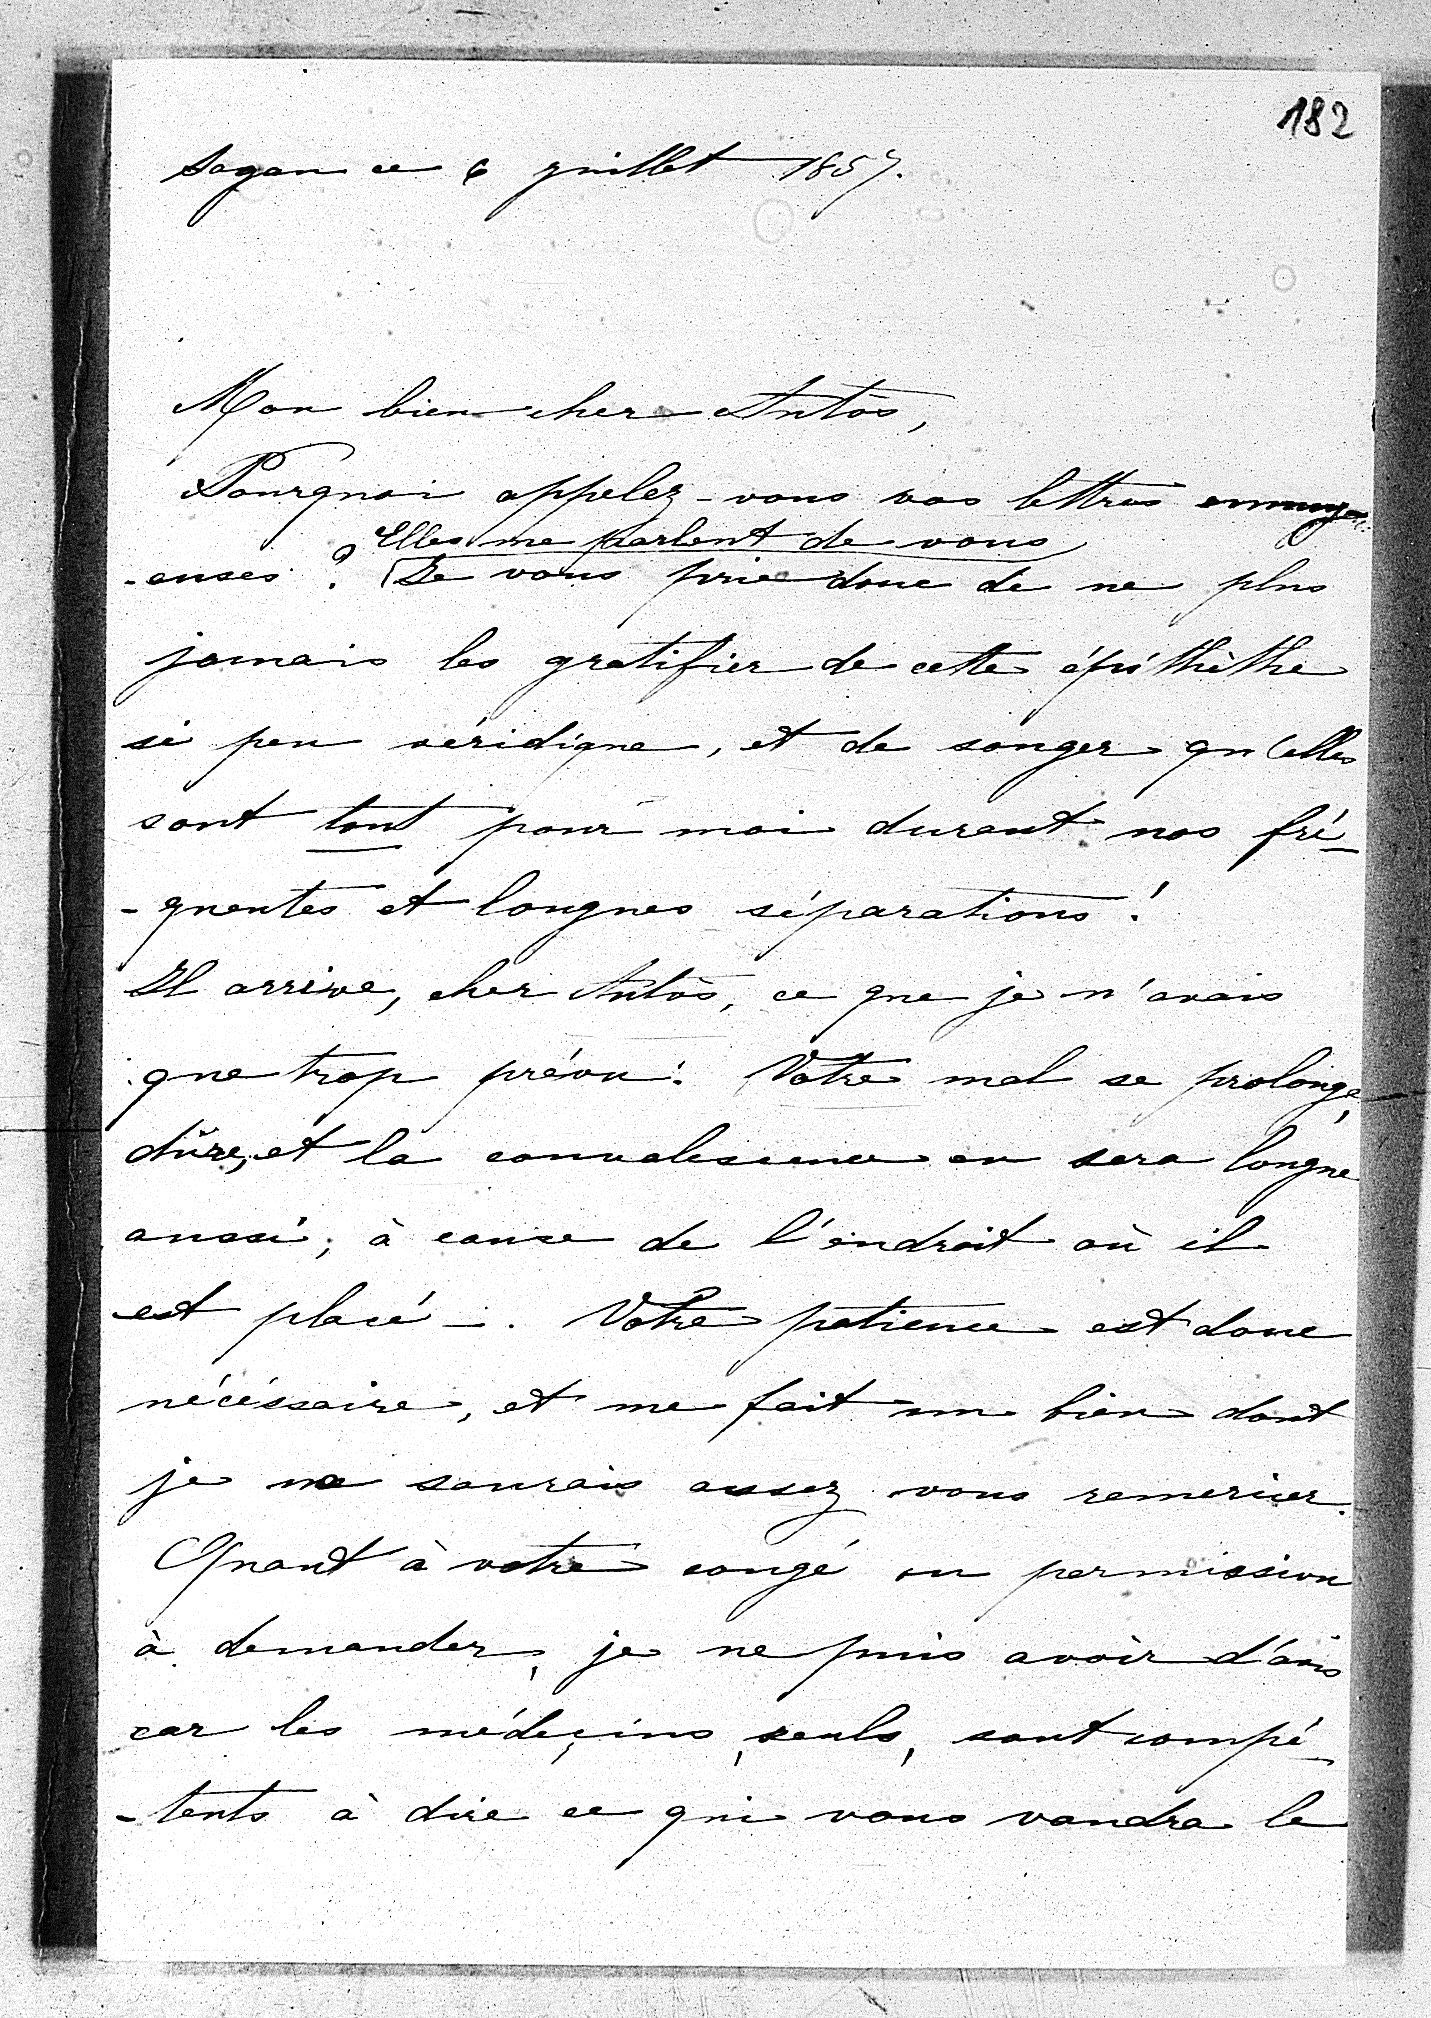 182
Sagan ce 6 juillet 1857.
Mon bien cher Antòs,
Pourquoi appelez-vous vos lettres ennuy-
Elles me parlent de vous
-euses ? Je vous prie donc de ne plus
jamais les gratifier de cette épithèthe
si peu véridique, et de songer qu'elles
sont tout pour moi durant nos fré-
-quentes et longues séparations !
Il arrive, cher Antòs, ce que je n'avais
que trop prévu : Votre mal se prolonge,
dûre, et la convalescence en sera longue
aussi, à cause de l'endroit où il
est placé -. Votre patience est donc
nécéssaire, et me fait un bien dont
je ne saurais assez vous remercier.
Quant à votre congé ou permission
à demander, je ne puis avoir d'avis
car les médeçins, seuls, sont compé-
-tents à dire ce qui vous vaudra le